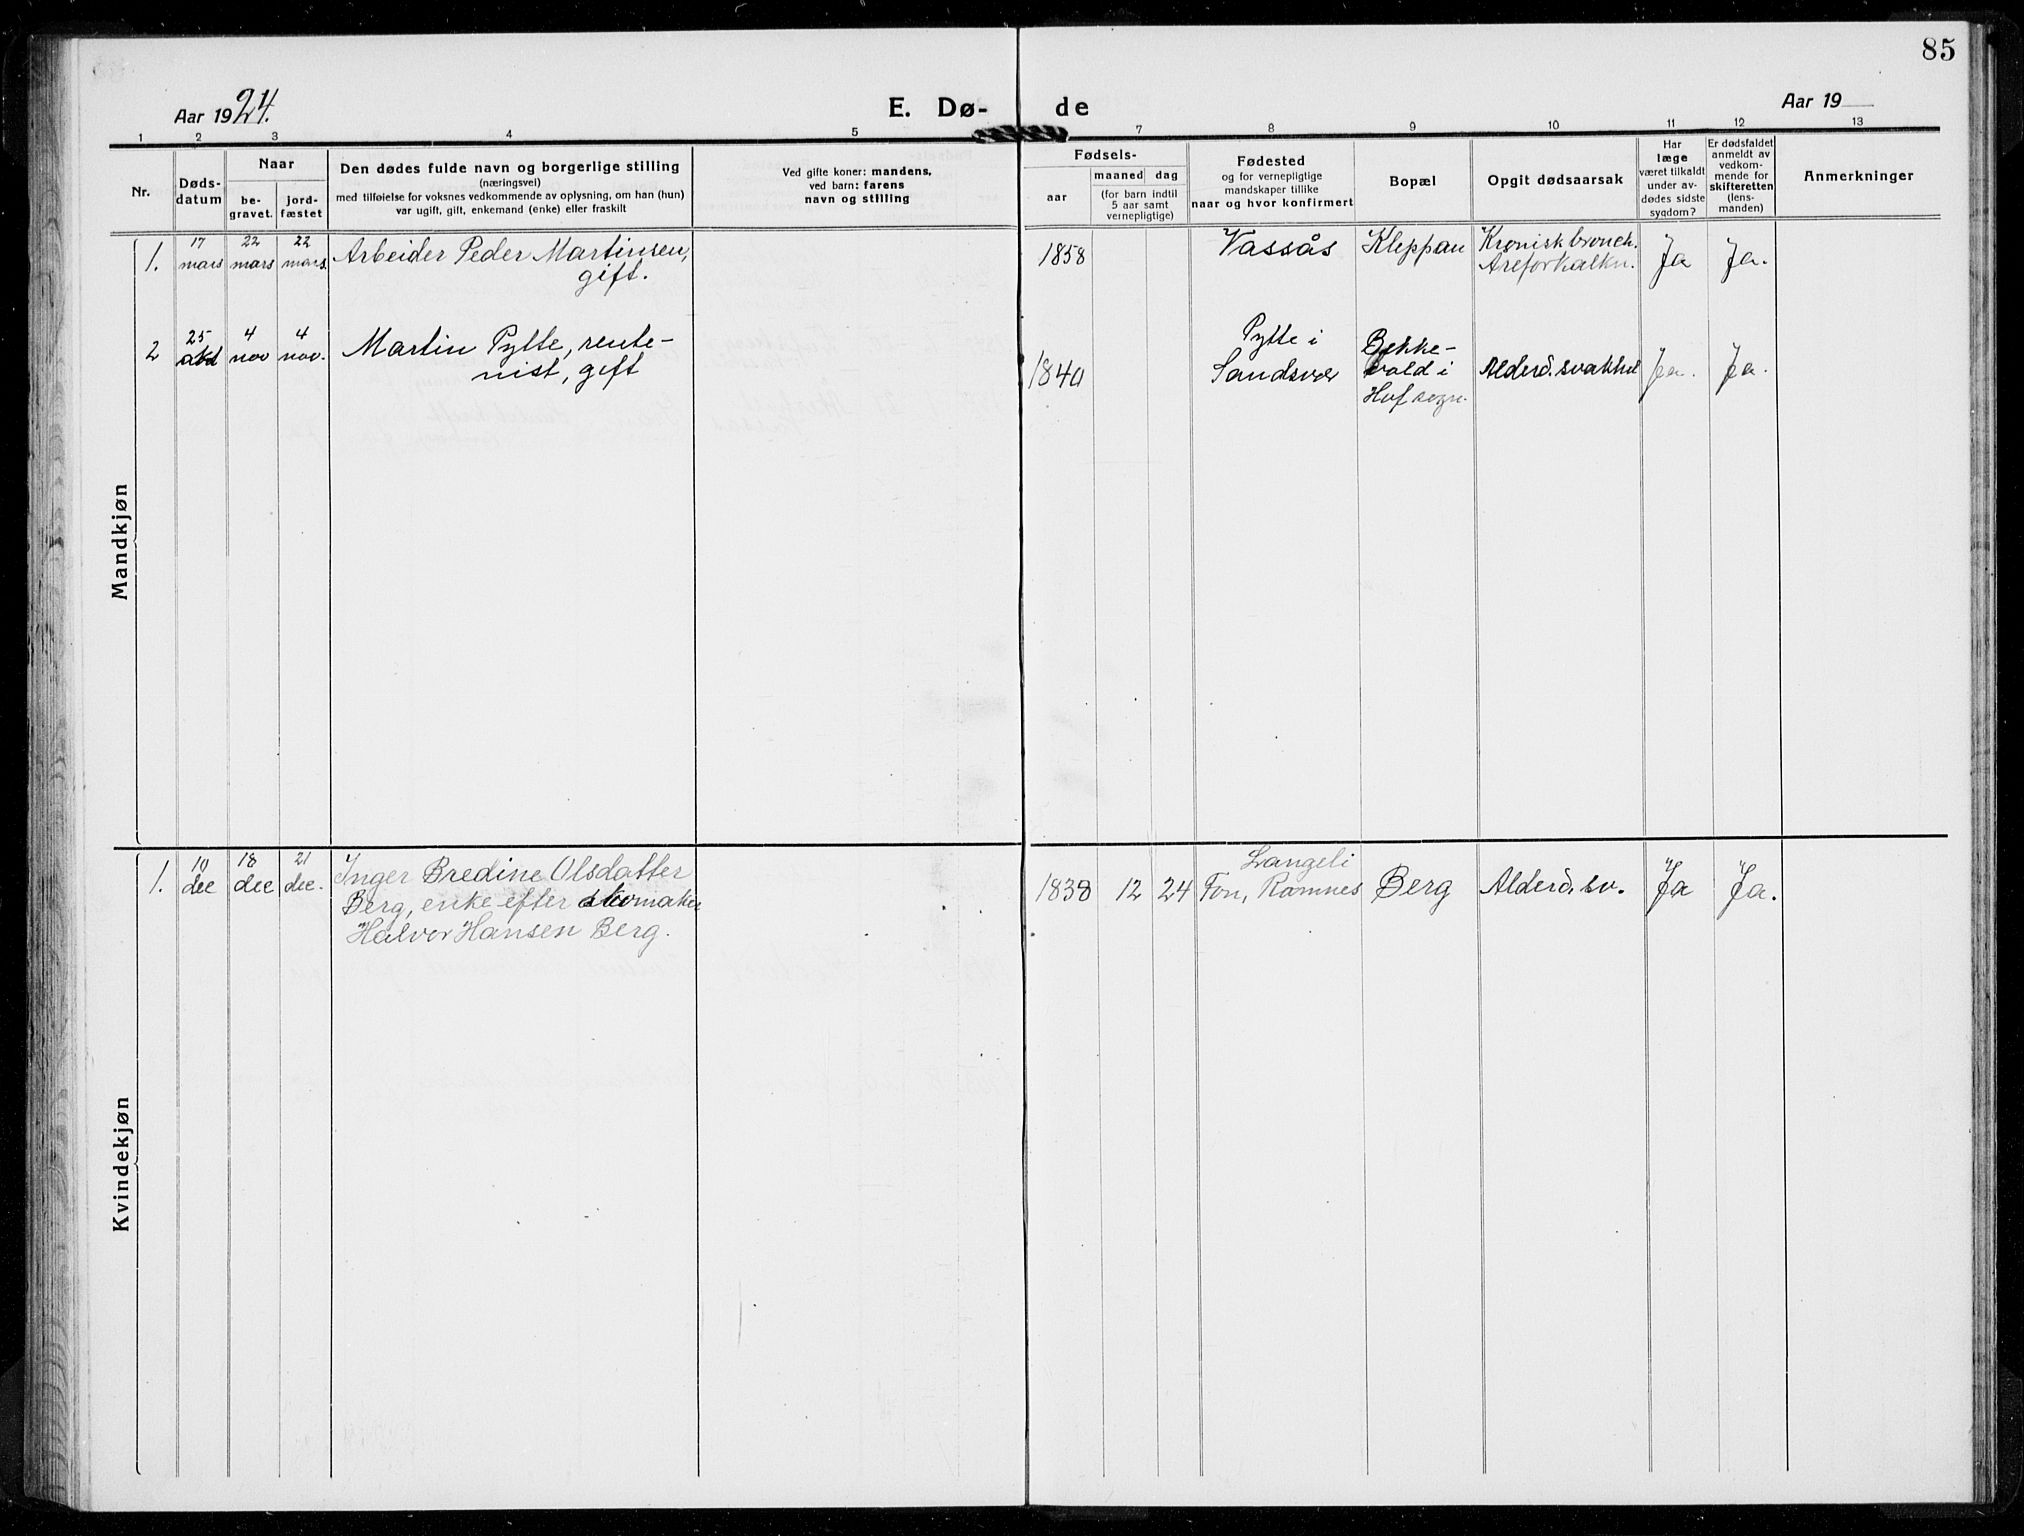 85
Aar 1924.
E. Dø- de
Aar 19
1 2 3 4 5 7 8 9 10 11 12 13
Nr.
Døds-
datum
Naar
be-
gravet.
jord-
fæstet
Den dødes fulde navn og borgerlige stilling
(næringsvei)
med tilføielse for voksnes vedkommende av oplysning, om han (hun)
var ugift, gift, enkemand (enke) eller fraskilt
Ved gifte koner: mandens,
ved barn: farens
navn og stilling
Fødsels-
aar
maaned dag
(for barn indtil
5 aar samt
vernepligtige)
Fødested
og for vernepligtige
mandskaper tillike
naar og hvor konfirmert
Bopæl
Opgit dødsaarsak
Har
læge
været tilkaldt
under av-
dødes sidste
sygdom?
Er dødsfaldet
anmeldt av
vedkom-
mende for
skifteretten
(lens-
manden)
Anmerkninger
Mandkjøn
1.
17
mars
22
mars
22
mars
Arbeider Peder Martinsen,
gift.
1858
Vassås
Kleppan
Kronisk bronch.
Areforkalkn.
Ja
Ja.
2
25
okt
4
nov
4
nov.
Martin Pytte, rente-
nist, gift
1840
Pytte i
Sandsvær
Bekke-
vold i
Hof sogn.
Alderd. svakhet
Ja.
Ja.
Kvindekjøn
1.
10
dec
18
dec
21
dec.
Inger Bredine Olsdatter
Berg, enke efter skomaker
Halvor Hansen Berg.
1838
12
24
Langeli
Fon, Ramnes
Berg
Alderd. sv.
Ja
Ja.